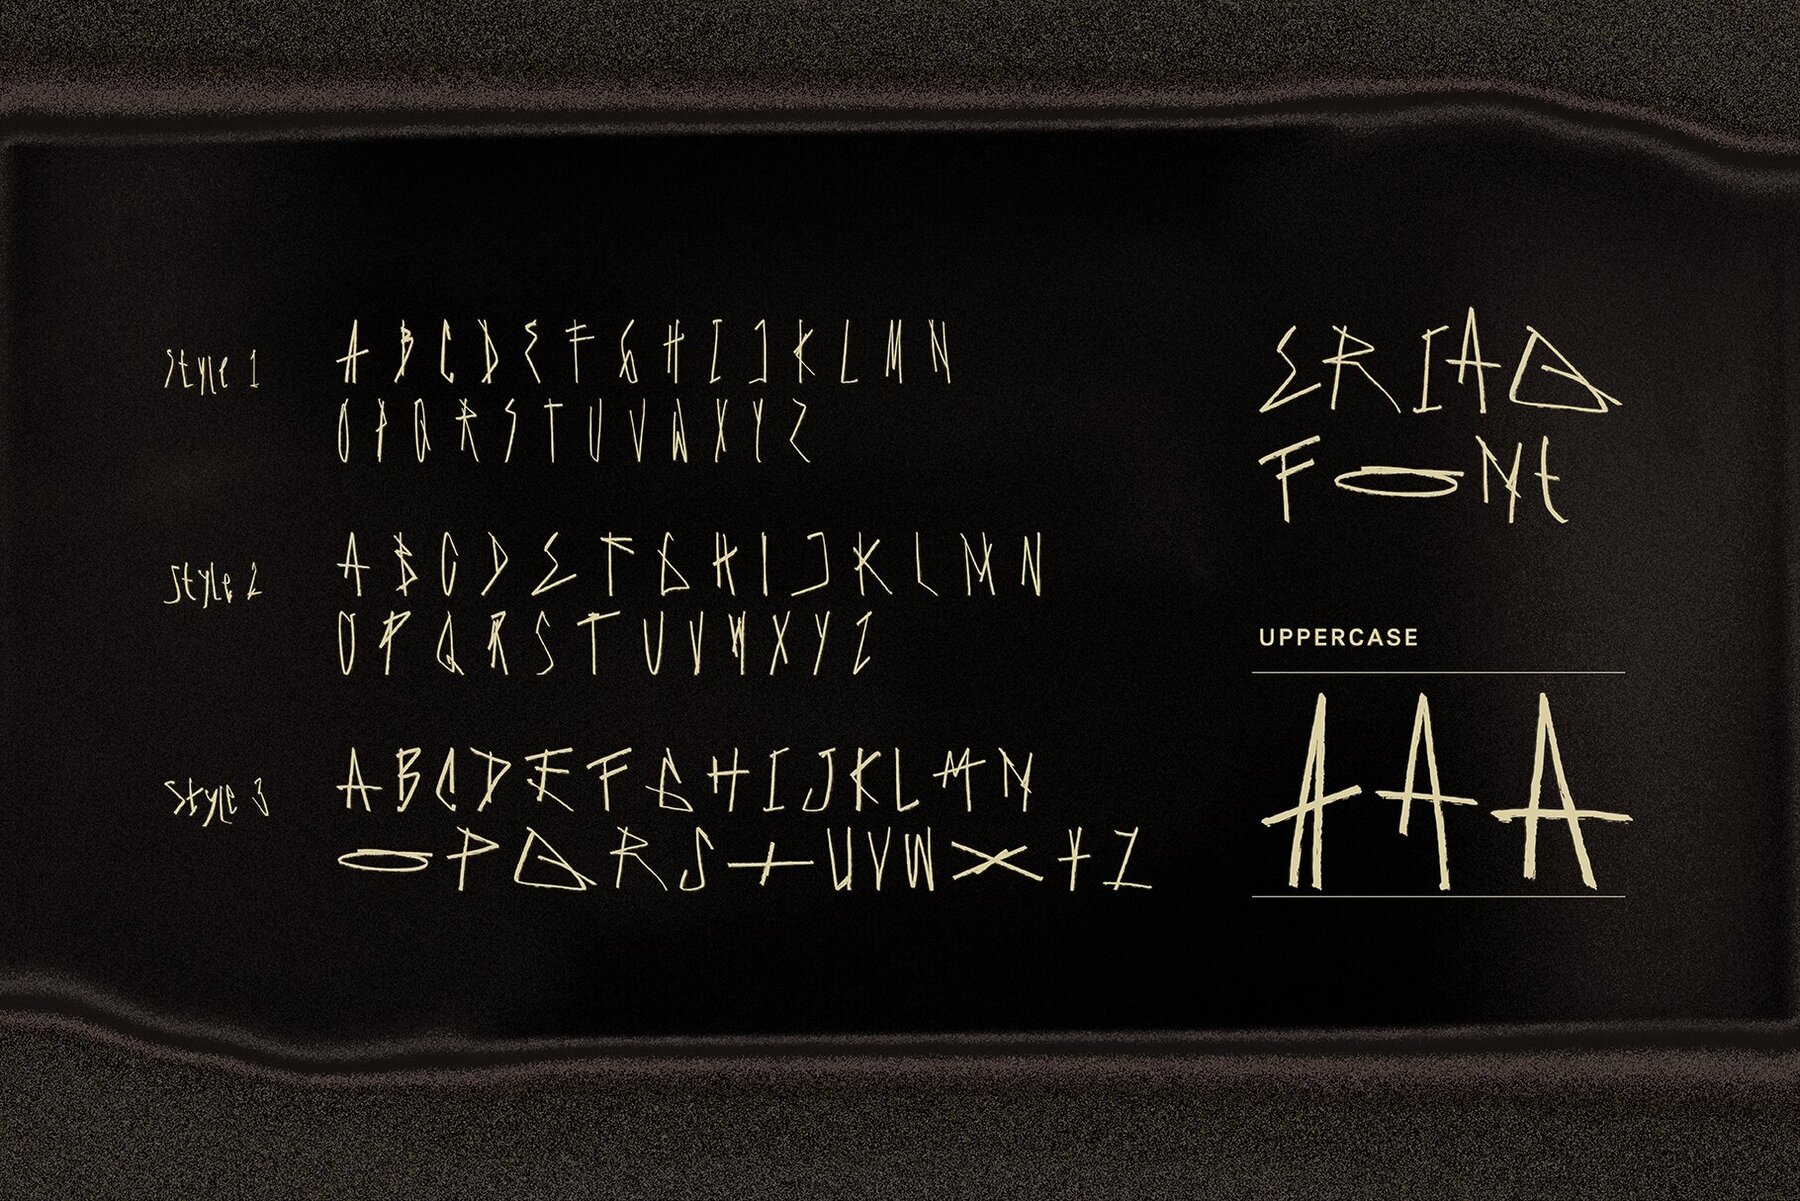 Style 1
A B C D E F G H I J K L M N
O P Q R S T U V W X Y Z
Style 2
A B C D E F G H I J K L M N
O P Q R S T U V W X Y Z
Style 3
A B C D E F G H I J K L M N
O P Q R S T U V W X Y Z
ERIAQ
FONt
UPPERCASE
A A A